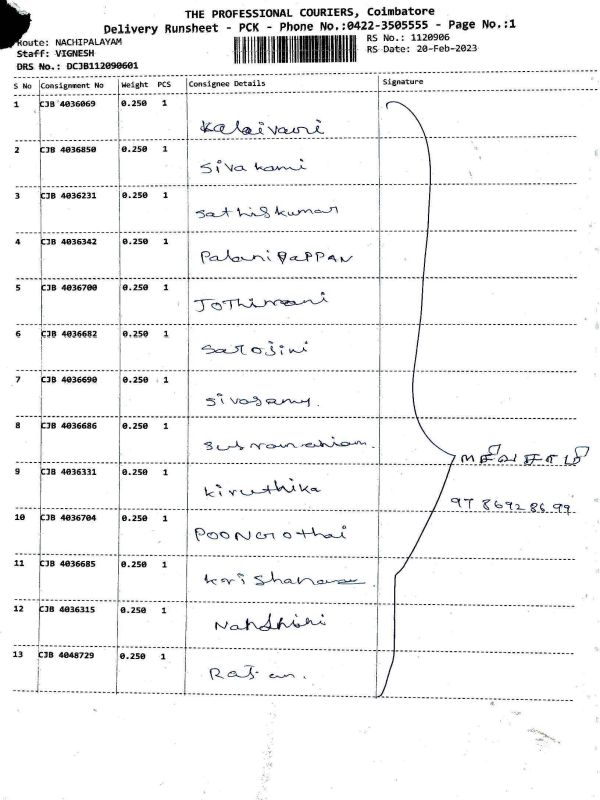 THE PROFESSIONAL COURIERS, Coimbatore
Delivery Runsheet - PCK - Phone No.:0422-3505555 - Page No.:1
Route: NACHIPALAYAM RS No.: 1120906
Staff: VIGNESH RS Date: 20-Feb-2023
DRS No.: DCJB112090601
S No Consignment No Weight PCS Consignee Details Signature
1 CJB 4036069 0.250 1
Kalaivani
2 CJB 4036850 0.250 1
Sivakami
3 CJB 4036231 0.250 1
Sathiskumar
4 CJB 4036342 0.250 1
PalaniPaPPAN
5 CJB 4036700 0.250 1
JoThimani
6 CJB 4036682 0.250 1
Sarojini
7 CJB 4036690 0.250 1
Sivasamy.
8 CJB 4036686 0.250 1
Subramaniam.
9 CJB 4036331 0.250 1
Kiruthika
97 8692 86 99
10 CJB 4036704 0.250 1
POONGothai
11 CJB 4036685 0.250 1
12 CJB 4036315 0.250 1
13 CJB 4048729 0.250 1
Rajan.